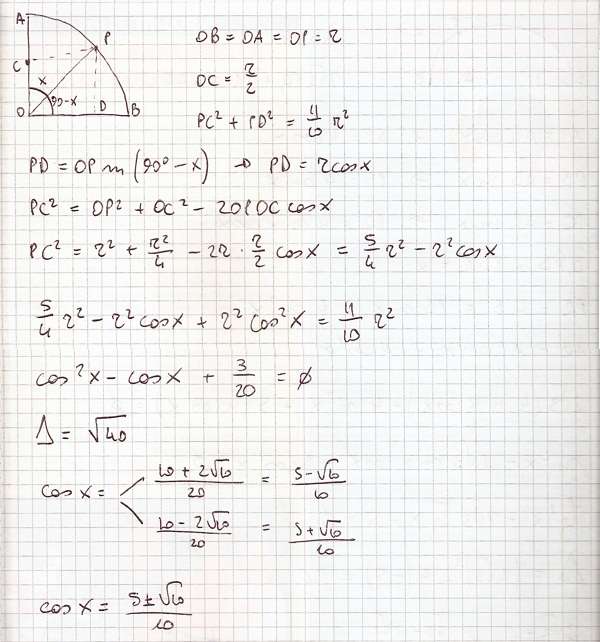 A
P
C
x
90-x
O
D
B
OB = OA = OP = r
OC = r/2
PC² + PD² = 11/10 r²
PD = OP sin (90° - x) → PD = r cos x
PC² = OP² + OC² - 2OP OC cos x
PC² = r² + r²/4 - 2r · r/2 cos x = 5/4 r² - r² cos x
5/4 r² - r² cos x + r² cos² x = 11/10 r²
cos² x - cos x + 3/20 = ∅
Δ = √40
cos x = (10 + 2√10)/20 = (5 - √10)/10
(10 - 2√10)/20 = (5 + √10)/10
cos x = (5 ± √10)/10